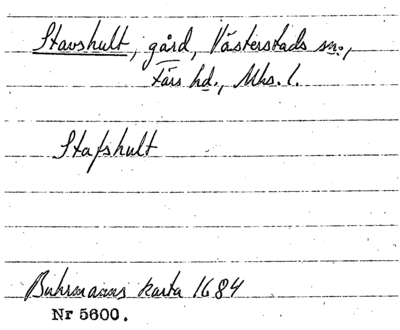 Stavshult, gård, Västerstads sn.,
Färs hd., Mhs. l.
Stafshult
Buhrmanns karta 1684
Nr 5600.